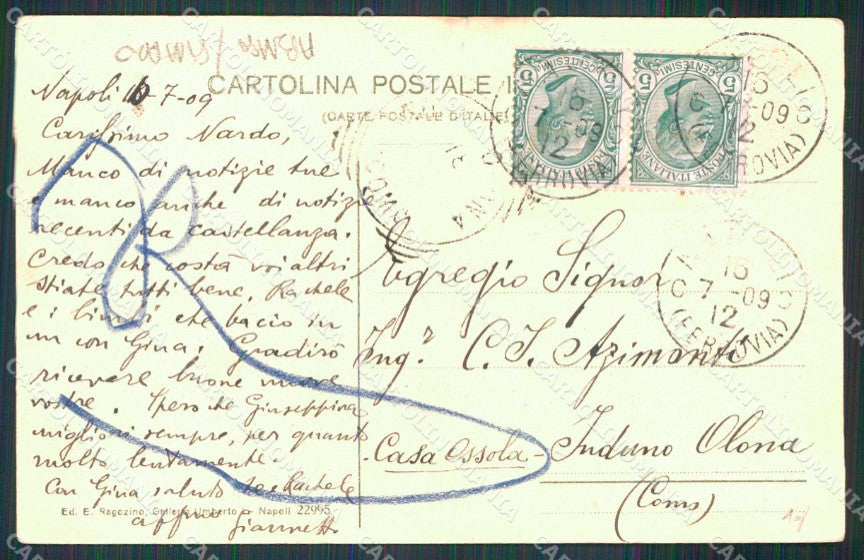 CARTOLINA POSTALE I
(CARTE POSTALE D'ITALIE
Napoli 16-7-09
Carissimo Nardo,
Manco di notizie tue
e manco anche di notizie
recenti da Castellanza.
Credo che costà voi altri
stiate tutti bene, Rachele
e i bimbi che bacio in
un con Gina. Gradirò
ricevere buone nuove
vostre. Spero che Giuseppina
migliori sempre, per quanto
molto lentamente.
Con Gina saluto te e Rachele
affmo
Ed. E. Ragozino, Galleria Umberto - Napoli 22995
Egregio Signor
Ing.r C. I. Azimonti
Casa Ossola - Induno Olona
(Como)
POSTE ITALIANE
CENTESIMI
5 5
POSTE ITALIANE
CENTESIMI
5 5
16
7-09
12
(FERROVIA)
16
7-09
12
(FERROVIA)
16
7-09
12
(FERROVIA)
CARTOLINOMANIA